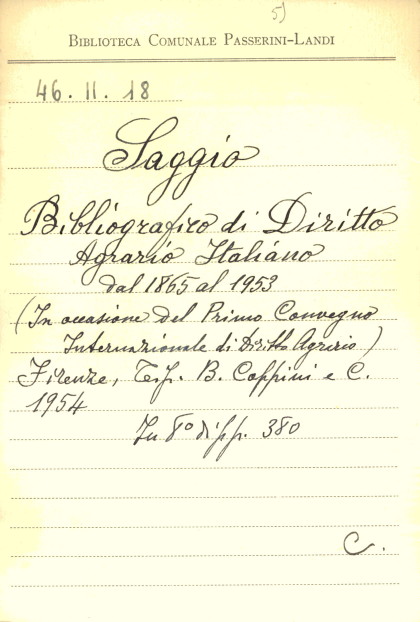 5)
BIBLIOTECA COMUNALE PASSERINI-LANDI
46. II. 18
Saggio
Bibliografico di Diritto
Agrario Italiano
dal 1865 al 1953
(In occasione del Primo Convegno
Internazionale di Diritto Agrario)
Firenze, Tip. B. Coppini e C.
1954
In 8° di pp. 380
C.